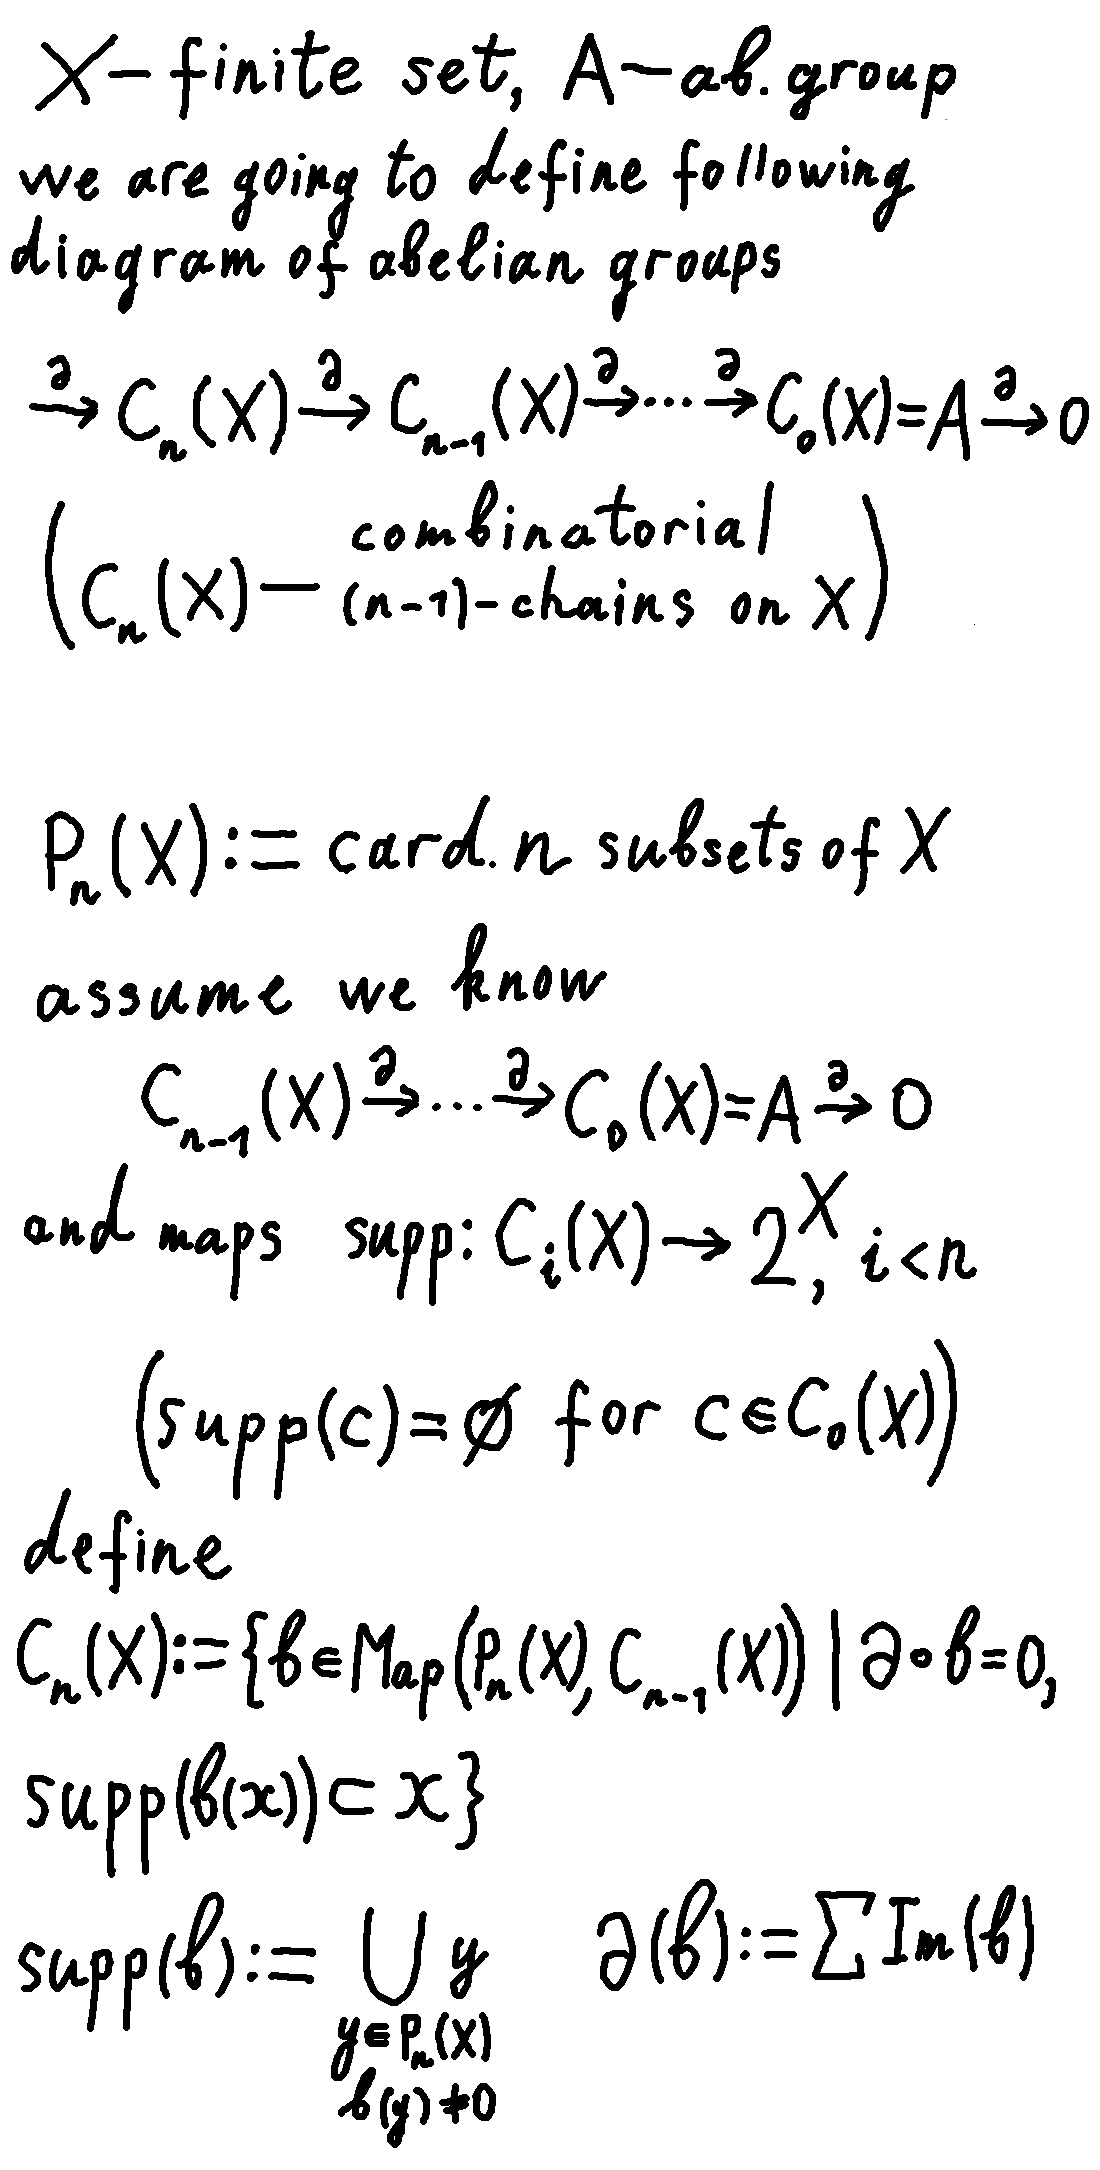 X — finite set, A — ab. group
we are going to define following
diagram of abelian groups
∂→ Cₙ(X) ∂→ Cₙ₋₁(X) ∂→ ... ∂→ C₀(X)=A ∂→ 0
(Cₙ(X) — combinatorial
(n-1)-chains on X)
Pₙ(X) := card. n subsets of X
assume we know
Cₙ₋₁(X) ∂→ ... ∂→ C₀(X)=A ∂→ 0
and maps supp: Cᵢ(X) → 2ˣ, i<n
(supp(c)=∅ for c∈C₀(X))
define
Cₙ(X):={b∈Map(Pₙ(X), Cₙ₋₁(X)) | ∂∘b=0,
supp(b(x))⊂x}
supp(b):= ⋃ y ∂(b):=∑Im(b)
y∈Pₙ(X)
b(y)≠0